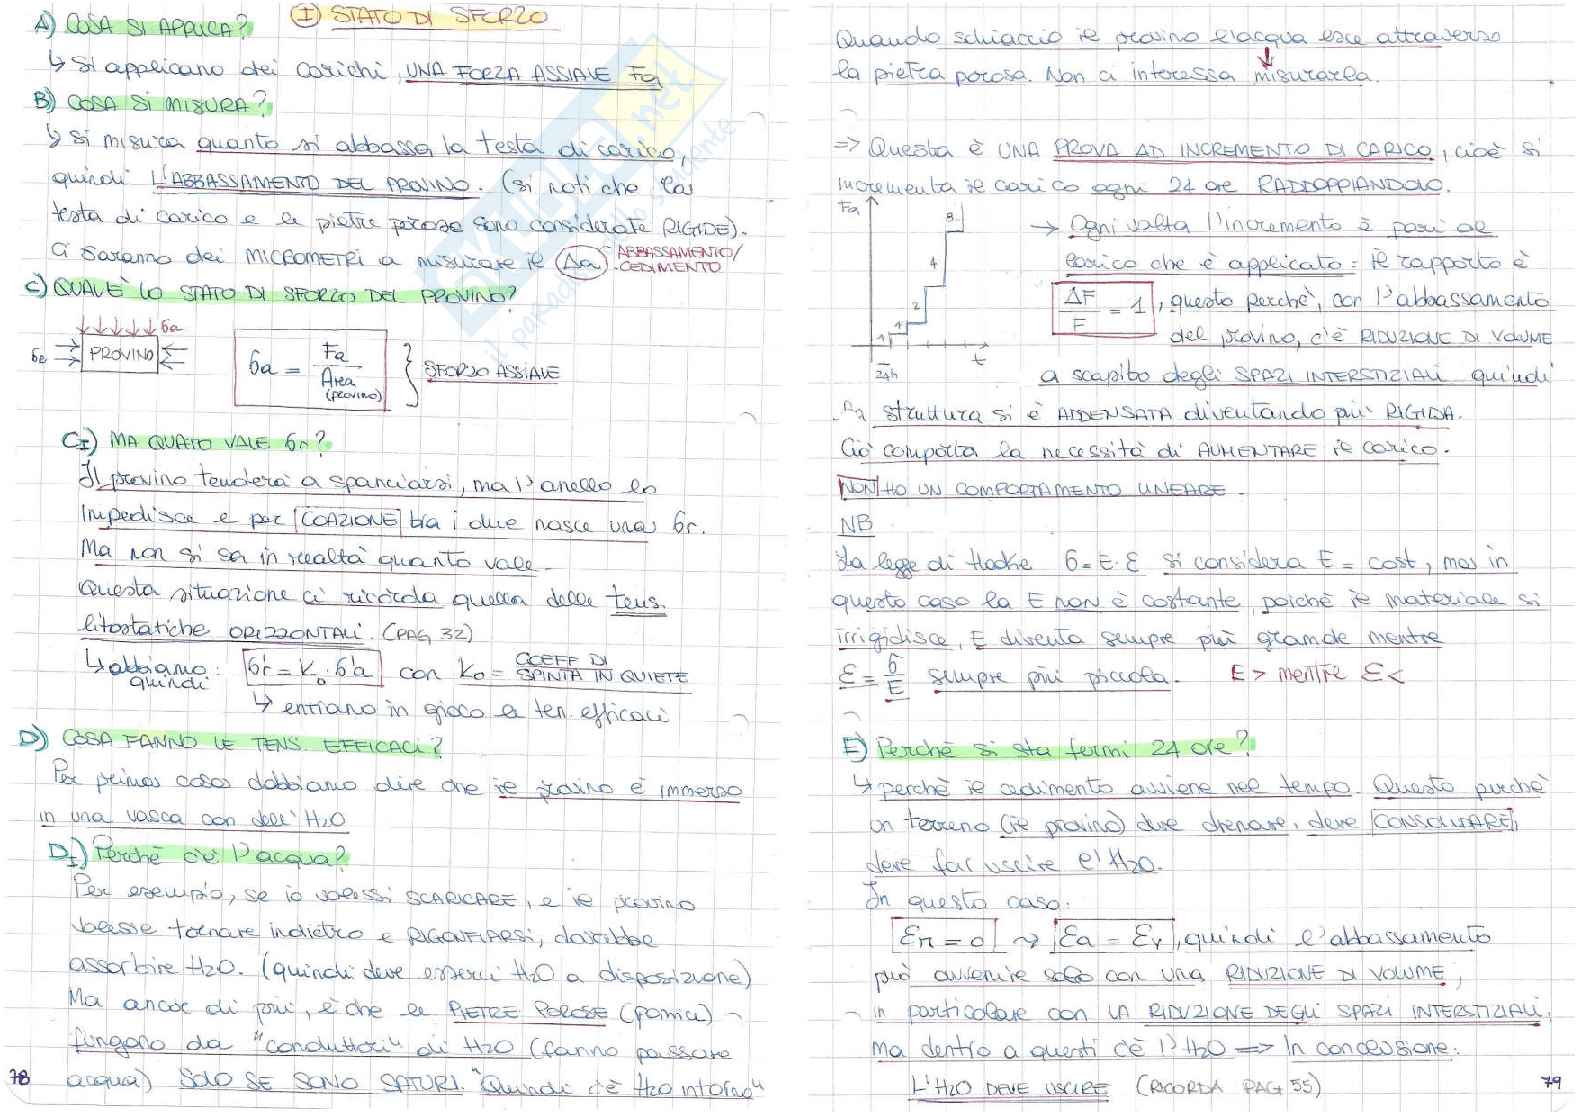 I) STATO DI SFORZO
A) COSA SI APPLICA?
↳ Si applicano dei carichi, UNA FORZA ASSIALE Fa
B) COSA SI MISURA?
↳ Si misura quanto si abbassa la testa di carico,
quindi L'ABBASSAMENTO DEL PROVINO. (si noti che la
testa di carico e le pietre porose sono considerate RIGIDE).
Ci saranno dei MICROMETRI a misurare il Δa ABBASSAMENTO/
CEDIMENTO
C) QUAL'È LO STATO DI SFORZO DEL PROVINO?
σa
σr PROVINO
σa = Fa / Area (PROVINO) } SFORZO ASSIALE
CI) MA QUANTO VALE σr?
Il provino tenderà a spanciarsi, ma l'anello lo
impedisce e per COAZIONE tra i due nasce una σr.
Ma non si sa in realtà quanto vale.
Questa situazione ci ricorda quella delle tens.
litostatiche ORIZZONTALI. (PAG 32)
↳ abbiamo quindi: σ'r = K0 · σ'a con K0 = COEFF DI
SPINTA IN QUIETE
↳ entriano in gioco le ten. efficaci
D) COSA FANNO LE TENS. EFFICACI?
Per prima cosa dobbiamo dire che il provino è immerso
in una vasca con dell'H2O
DI) Perchè c'è l'acqua?
Per esempio, se io volessi SCARICARE, e il provino
volesse tornare indietro e RIGONFIARSI, dovrebbe
assorbire H2O. (quindi deve esserci H2O a disposizione)
Ma ancor di più, è che le PIETRE POROSE (pomici)
fungono da "conduttori" di H2O (fanno passare
acqua) SOLO SE SONO SATURI. "Quindi c'è H2O intorno"
78
Quando schiaccio il provino l'acqua esce attraverso
la pietra porosa. Non ci interessa misurarla.
=> Questa è UNA PROVA AD INCREMENTO DI CARICO, cioè si
incrementa il carico ogni 24 ore RADDOPPIANDOLO.
Fa
8
4
2
1
1
t
24h
→ Ogni volta l'incremento è pari al
carico che è applicato: il rapporto è
ΔF / F = 1, questo perchè, con l'abbassamento
del provino, c'è RIDUZIONE DI VOLUME
a scapito degli SPAZI INTERSTIZIALI quindi
la struttura si è ADDENSATA diventando più RIGIDA.
Ciò comporta la necessità di AUMENTARE il carico.
NON HO UN COMPORTAMENTO LINEARE.
NB
La legge di Hooke σ = E · ε si considera E = cost, ma in
questo caso la E non è costante, poichè il materiale si
irrigidisce, E diventa sempre più grande mentre
ε = σ/E sempre più piccola. E > mentre ε <
E) Perchè si sta fermi 24 ore?
↳ perchè il cedimento avviene nel tempo. Questo perchè
un terreno (il provino) deve drenare, deve CONSOLIDARE,
deve far uscire l'H2O.
In questo caso:
εr = 0 ~> εa = εv, quindi l'abbassamento
può avvenire solo con una RIDUZIONE DI VOLUME,
in particolare con la RIDUZIONE DEGLI SPAZI INTERSTIZIALI,
ma dentro a questi c'è l'H2O => In conclusione:
L'H2O DEVE USCIRE (RICORDA PAG 55)
79